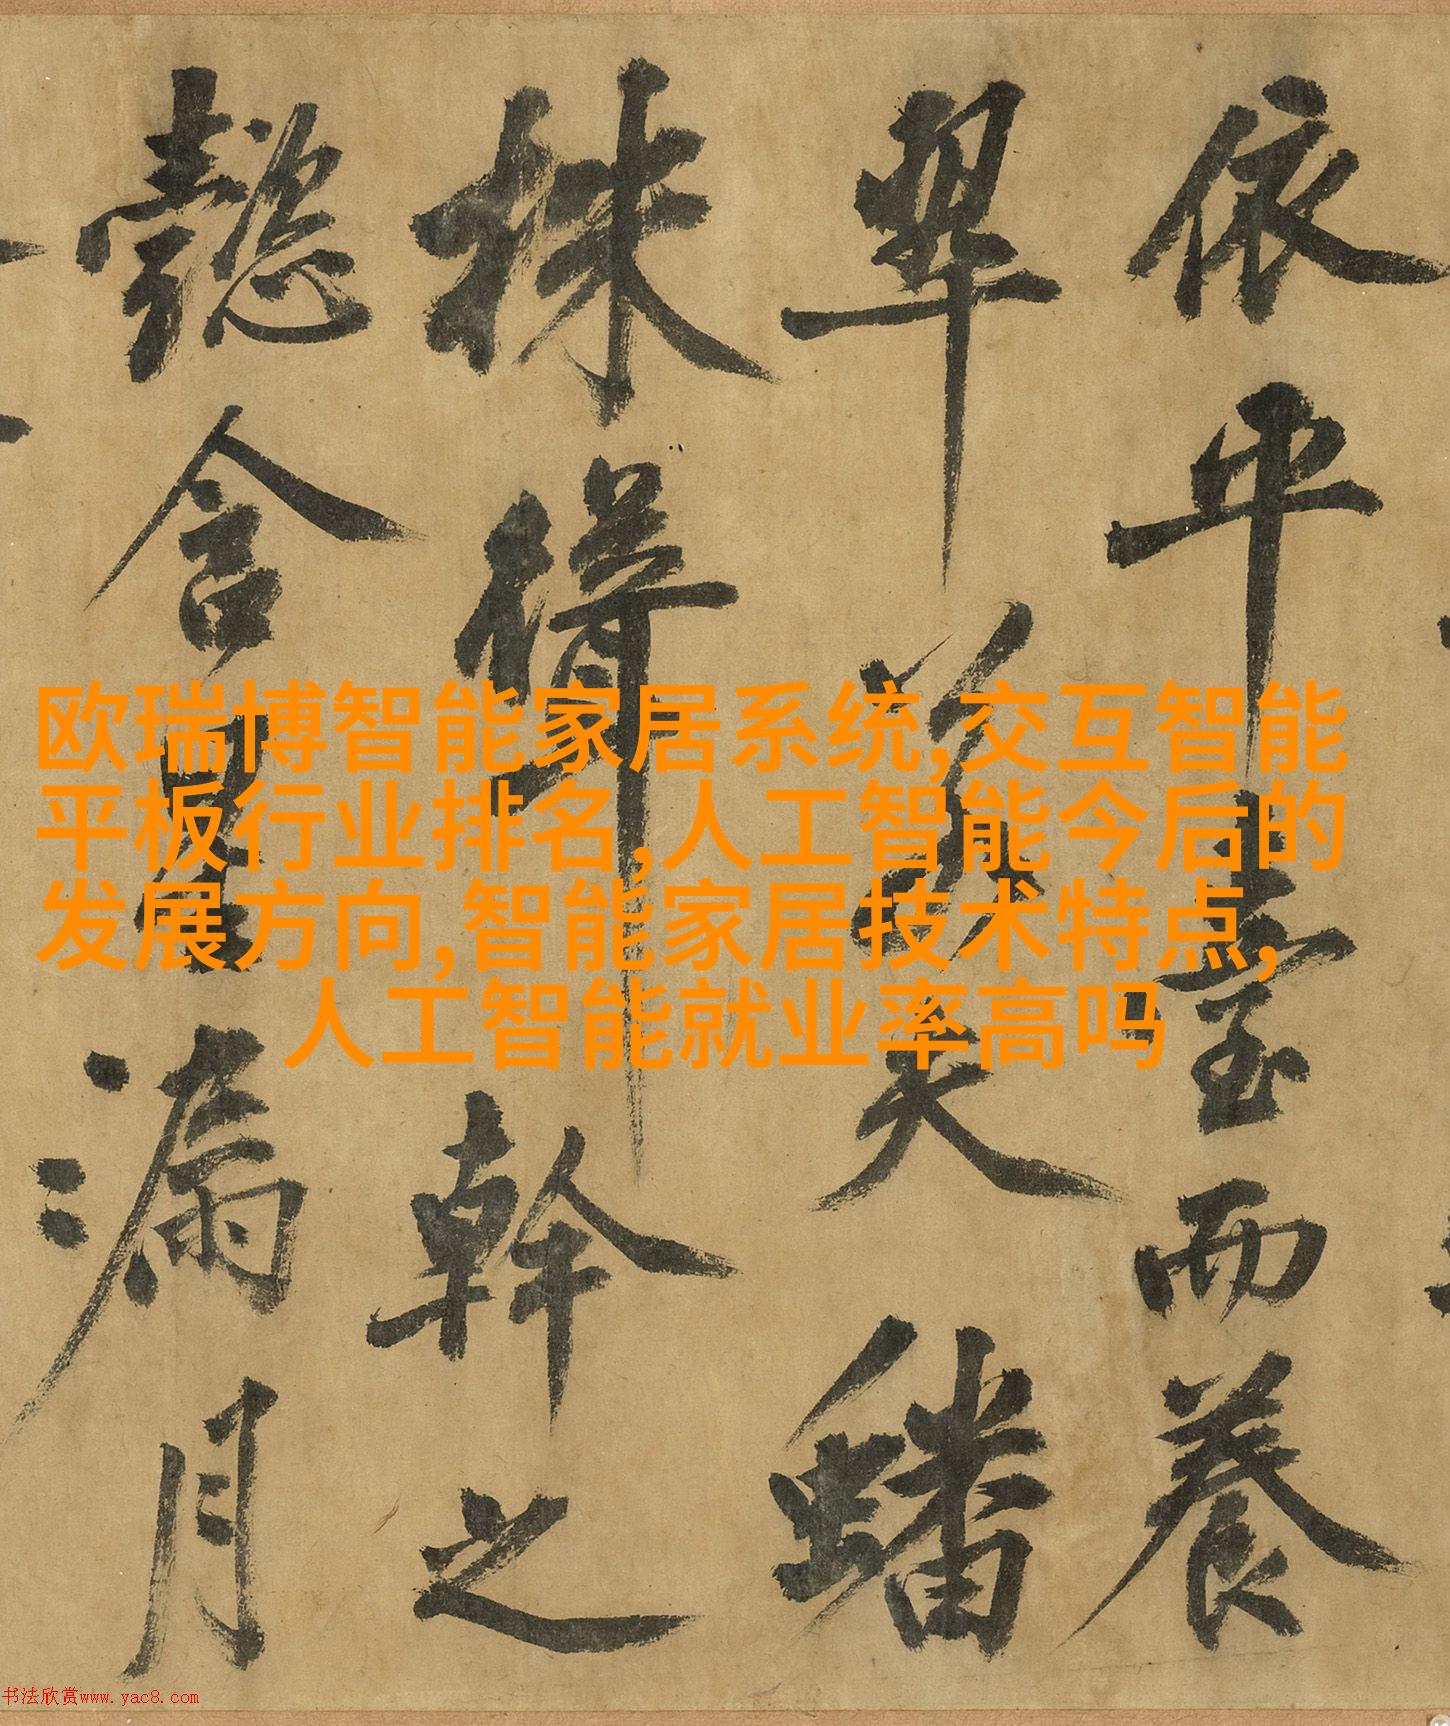 依平臺而養
翠若夫蟠
株幹之
懿含星漏月
欧瑞博智能家居系统,交互智能
平板行业排名,人工智能今后的
发展方向,智能家居技术特点,
人工智能就业率高吗
书法欣赏www.yac8.com